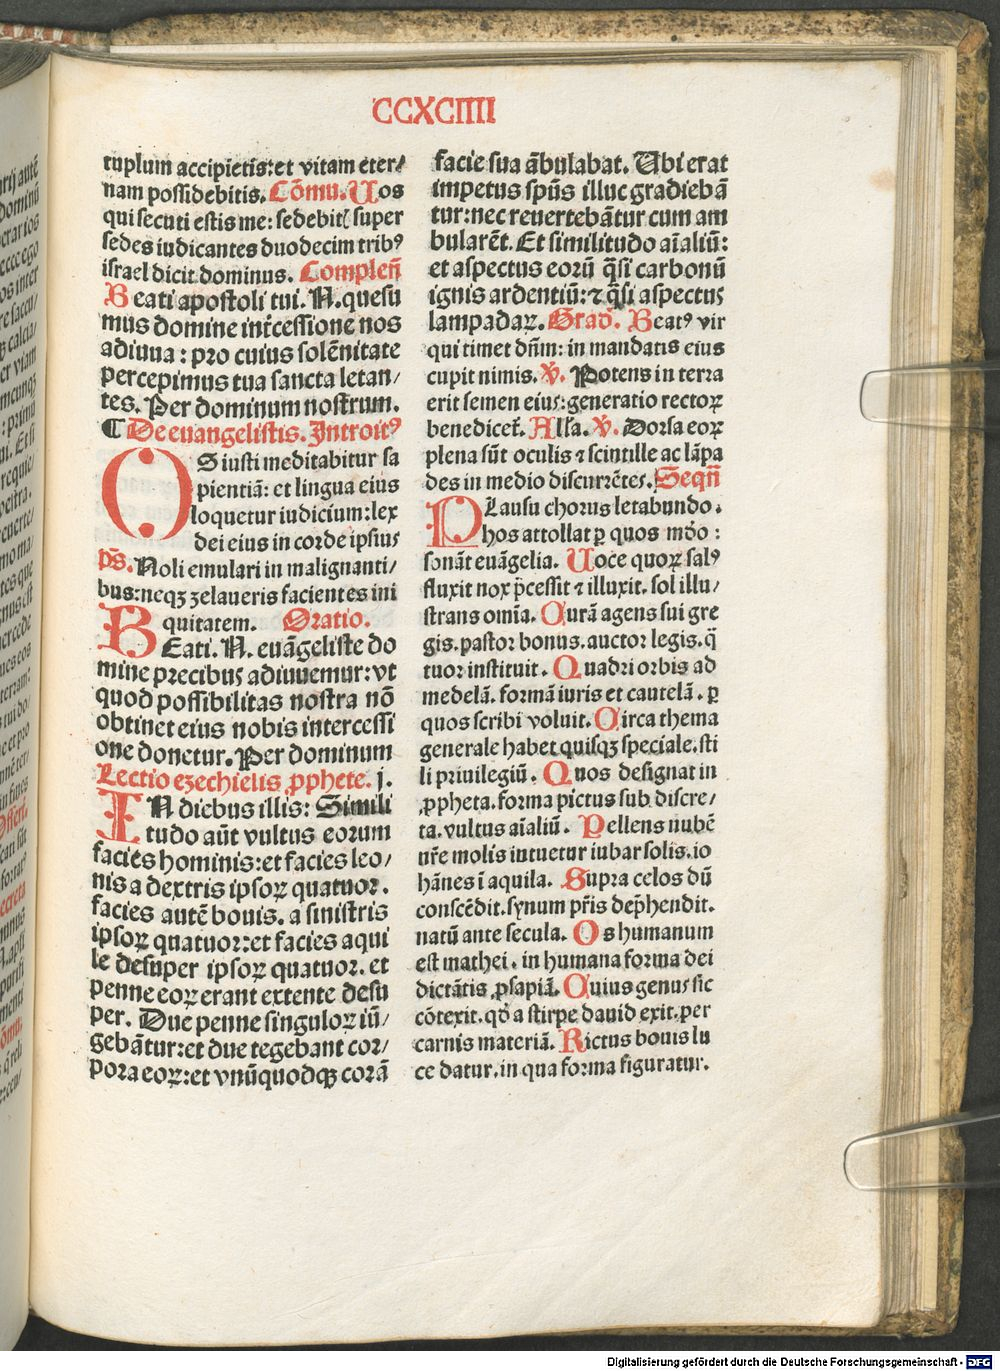 CCXCIIII
tuplum accipiet̄is: et vitam eter⸗
nam possidebitis. Cōmu. Uos
qui secuti estis me: sedebit̉ super
sedes iudicantes duodecim tribꝰ
israel dicit dominus. Complen̄
Beati apostoli tui. N. quesu
mus domine int̄cessione nos
adiuua: pro cuius solēnitate
percepimus tua sancta letan⸗
tes. Per dominum nostrum.
¶ De euangelistis. Introitꝰ
OS iusti meditabitur sa
pientiā: et lingua eius
loquetur iudicium: lex
dei eius in corde ipsius
ps̄. Noli emulari in malignanti⸗
bus: neqꝫ zelaueris facientes ini
quitatem. Oratio.
BEati. N. euāgeliste do
mine precibus adiuuemur: vt
quod possibilitas nostra nō
obtinet eius nobis intercessi
one donetur. Per dominum
Lectio ezechielis ꝓphete. j.
IN diebus illis: Simili
tudo aūt vultus eorum
facies hominis: et facies leo⸗
nis a dextris ipsoꝝ quatuor.
facies autē bouis. a sinistris
ipsoꝝ quatuor: et facies aqui
le desuper ipsoꝝ quatuor. et
penne eoꝝ erant extente desu
per. Due penne singuloꝝ iū⸗
gebātur: et due tegebant cor⸗
pora eoꝝ: et vnūquodqꝫ corā
facie sua ābulabat. Ubi erat
impetus spūs illuc gradiebā
tur: nec reuertebātur cum am
bularēt. Et similitudo aīaliū:
et aspectus eorū q̄si carbonū
ignis ardentiū: ⁊ q̄si aspectus
lampadaꝝ. Grad̄. Beatꝰ vir
qui timet dn̄m: in mandatis eius
cupit nimis. v̄. Potens in terra
erit semen eius: generatio rectoꝝ
benedicet̄. Alla. v̄. Dorsa eoꝝ
plena sūt oculis ⁊ scintille ac lāpa
des in medio discurrētes. Seqn̄
PLausu chorus letabundo.
hos attollat ꝑ quos mūdo:
sonāt euāgelia. Uoce quoꝝ salꝰ
fluxit nox p̄cessit ⁊ illuxit. sol illu⸗
strans omīa. Curā agens sui gre
gis. pastor bonus. auctor legis. q̄
tuor instituit. Quadri orbis ad
medelā. formā iuris et cautelā. ꝑ
quos scribi voluit. Circa thema
generale habet quisqꝫ speciale. sti
li priuilegiū. Quos designat in
ꝓpheta. forma pictus sub discre⸗
ta. vultus aīaliū. Pellens nubē
nr̄e molis intuetur iubar solis. io
hānes ī aquila. Supra celos dū
conscēdit. synum pr̄is dep̄hendit.
natū ante secula. Os humanum
est mathei. in humana forma dei
dictātis ꝓsapiā. Cuius genus sic
cōtexit. qd̄ a stirpe dauid exit. per
carnis materiā. Rictus bouis lu
ce datur. in qua forma figuratur.
Digitalisierung gefördert durch die Deutsche Forschungsgemeinschaft - DFG